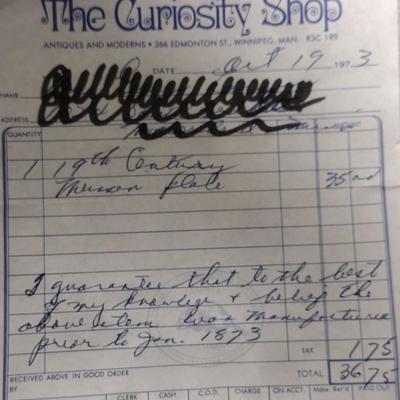 The Curiosity Shop
ANTIQUES AND MODERNS • 266 EDMONTON ST., WINNIPEG, MAN. R3C 1R9
DATE Oct 19 1973
NAME
ADDRESS
QUANTITY
1 19th Century
plate 35 00
I guarantee that to the best
of my knowledge & belief the
above item was manufactured
prior to Jan. 1873
TAX 1 75
RECEIVED ABOVE IN GOOD ORDER TOTAL 36 75
BY
CLERK CASH C.O.D. CHARGE ON ACCT. Mdse. Ret'd PAID OUT